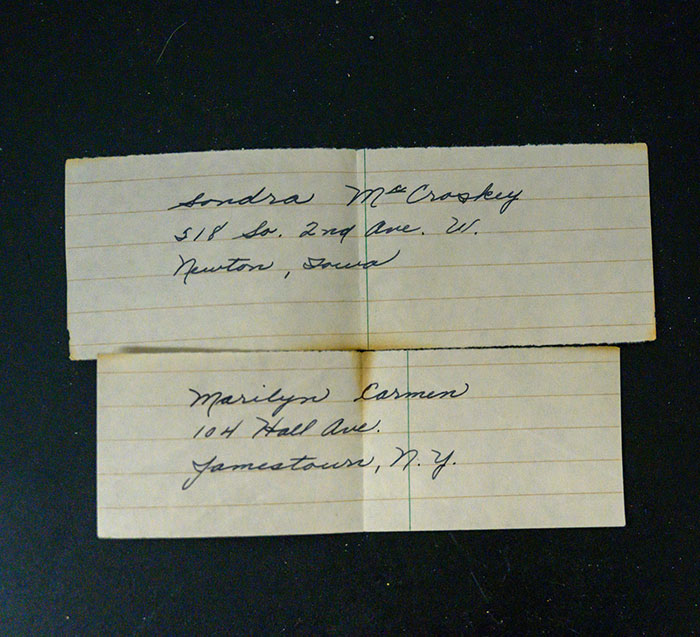 Sondra McCroskey
518 So. 2nd Ave. W.
Newton, Iowa
Marilyn Carmen
104 Hall Ave.
Jamestown, N.Y.